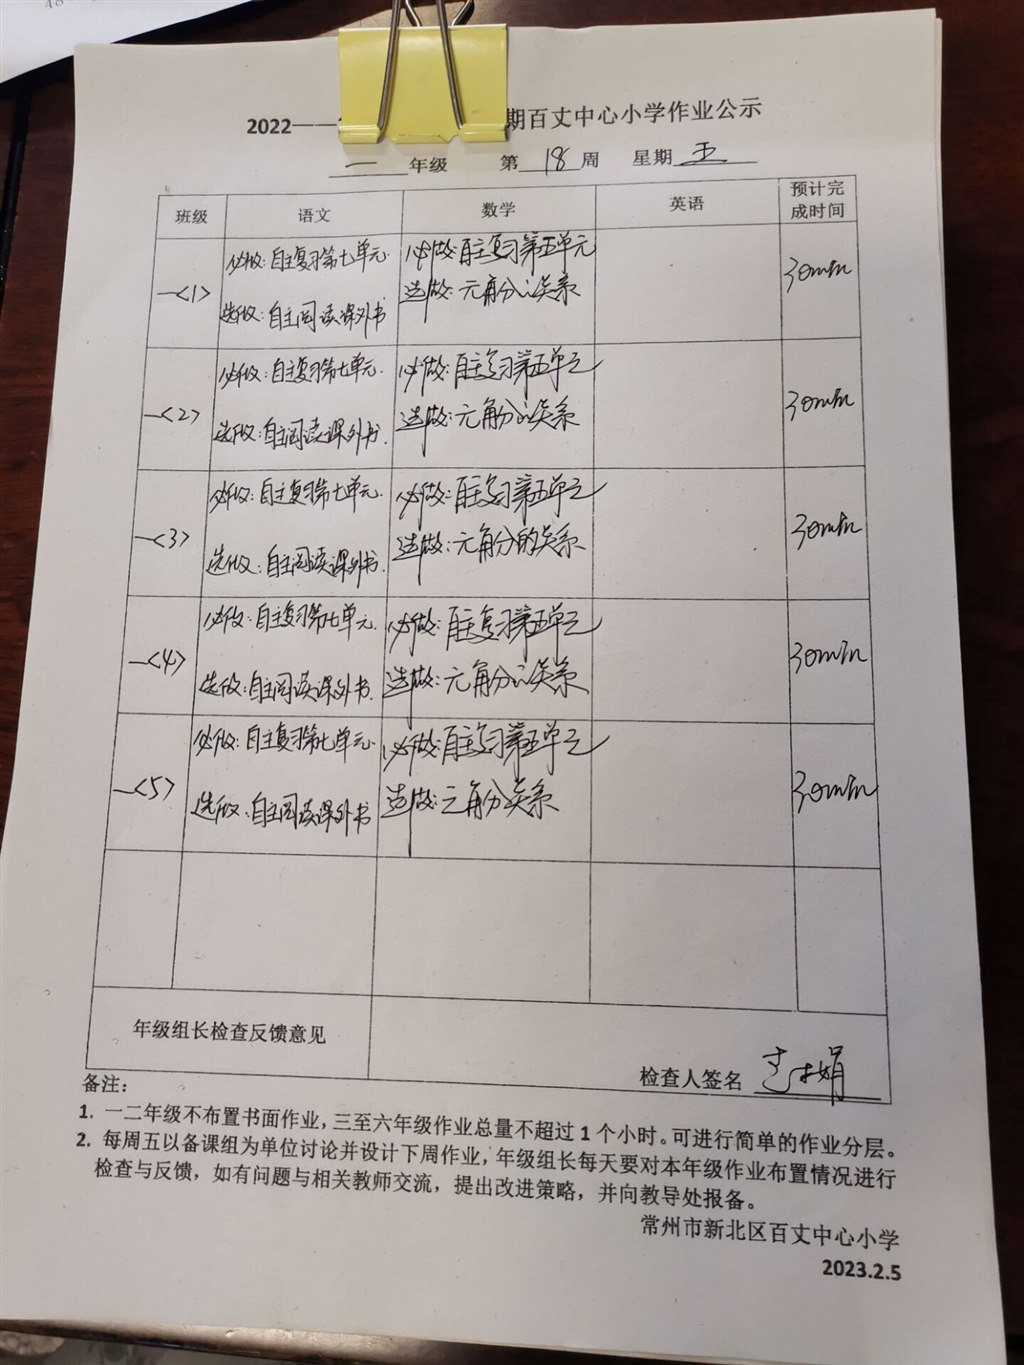 2022——
期百丈中心小学作业公示
一 年级 第 18 周 星期 五
班级 语文 数学 英语 预计完成时间
一<1> 必做：自主复习第七单元. 必做：自主复习第五单元 30min
选做：自主阅读课外书 选做：元角分的关系
一<2> 必做：自主复习第七单元. 必做：自主复习第五单元 30min
选做：自主阅读课外书. 选做：元角分的关系
一<3> 必做：自主复习第七单元. 必做：自主复习第五单元 30min
选做：自主阅读课外书. 选做：元角分的关系
一<4> 必做：自主复习第七单元. 必做：自主复习第五单元 30min
选做：自主阅读课外书. 选做：元角分的关系
一<5> 必做：自主复习第七单元. 必做：自主复习第五单元 30min
选做：自主阅读课外书 选做：元角分关系
年级组长检查反馈意见
检查人签名
备注：
1. 一二年级不布置书面作业，三至六年级作业总量不超过 1 个小时。可进行简单的作业分层。
2. 每周五以备课组为单位讨论并设计下周作业，年级组长每天要对本年级作业布置情况进行
检查与反馈，如有问题与相关教师交流，提出改进策略，并向教导处报备。
常州市新北区百丈中心小学
2023.2.5